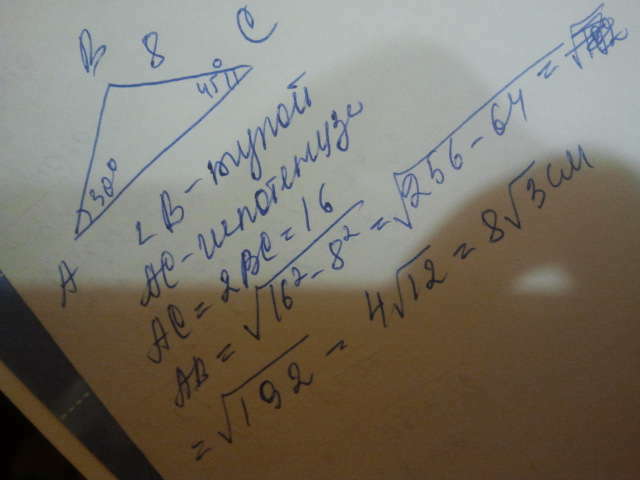 B 8 C
45°
30°
A
∠B - тупой
AC - гипотенуза
AC = 2BC = 16
AB = √16² - 8² = √256 - 64 =
= √192 = 4√12 = 8√3 см